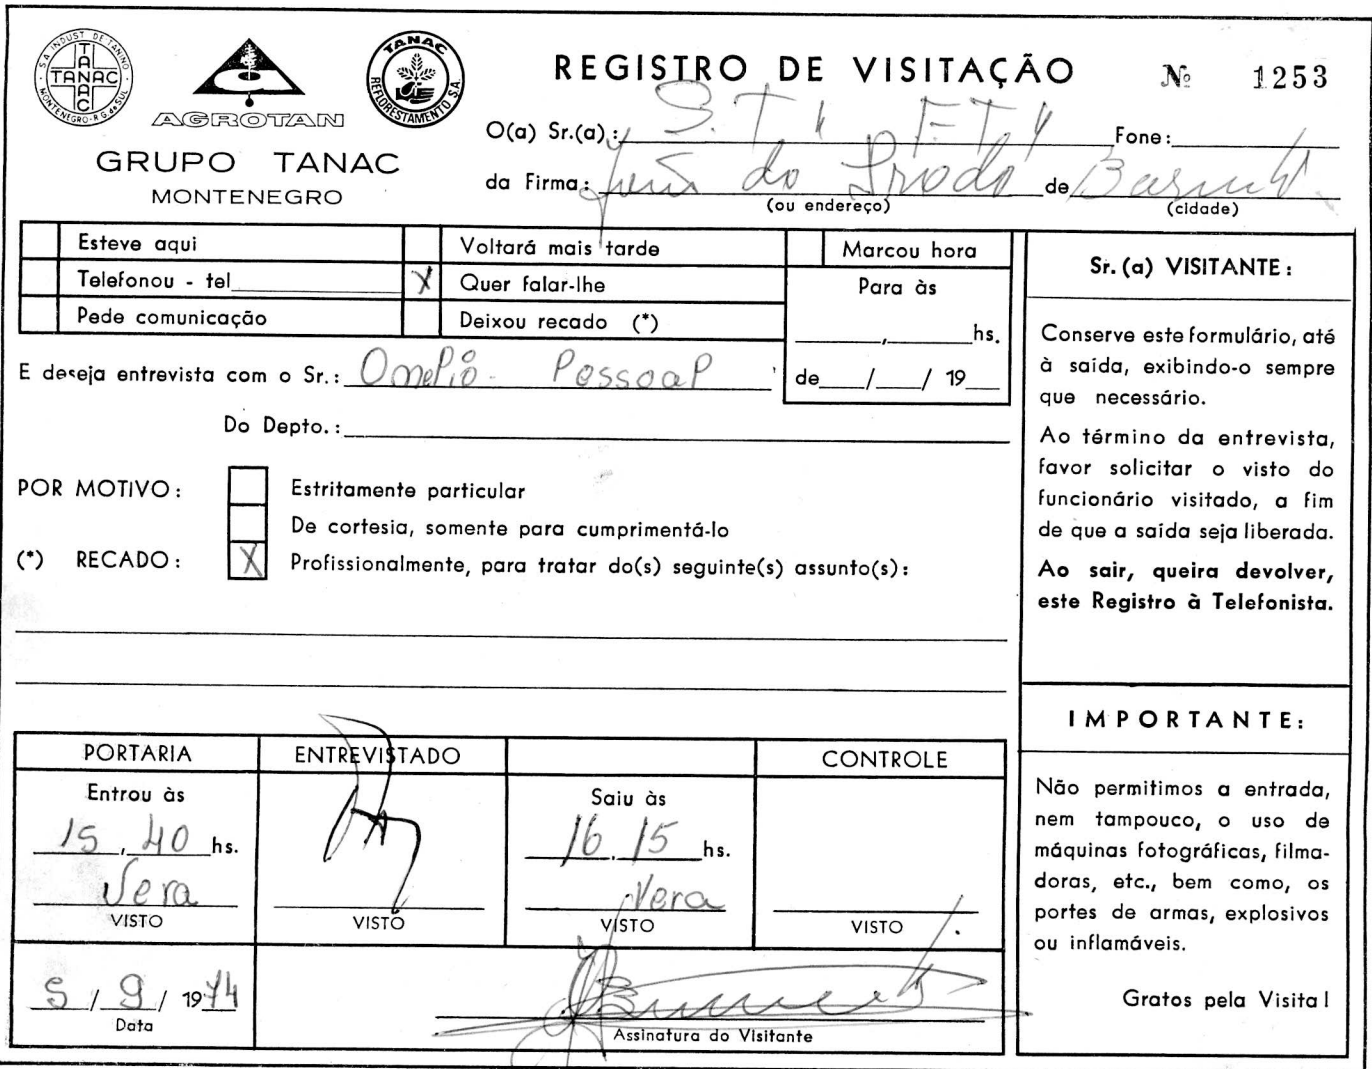 S.A. INDUST. DE TANINO
TANAC
TANAC
MONTENEGRO-R.G. do SUL
AGROTAN
TANAC
REFLORESTAMENTO S.A.
GRUPO TANAC
MONTENEGRO
REGISTRO DE VISITAÇÃO Nº 1253
O(a) Sr.(a): Fone:
da Firma: do de
(ou endereço) (cidade)
Esteve aqui
Telefonou - tel
Pede comunicação
Voltará mais tarde
X Quer falar-lhe
Deixou recado (*)
Marcou hora
Para às
, hs.
de / / 19
E deseja entrevista com o Sr.: Pessoal
Do Depto.:
POR MOTIVO: Estritamente particular
De cortesia, somente para cumprimentá-lo
(*) RECADO: X Profissionalmente, para tratar do(s) seguinte(s) assunto(s):
PORTARIA
Entrou às
15,40 hs.
Vera
VISTO
ENTREVISTADO
VISTO
Saiu às
16,15 hs.
Vera
VISTO
CONTROLE
VISTO
5 / 9 / 1974
Data
Assinatura do Visitante
Sr. (a) VISITANTE:
Conserve este formulário, até
à saída, exibindo-o sempre
que necessário.
Ao término da entrevista,
favor solicitar o visto do
funcionário visitado, a fim
de que a saída seja liberada.
Ao sair, queira devolver,
este Registro à Telefonista.
IMPORTANTE:
Não permitimos a entrada,
nem tampouco, o uso de
máquinas fotográficas, filma-
doras, etc., bem como, os
portes de armas, explosivos
ou inflamáveis.
Gratos pela Visita!